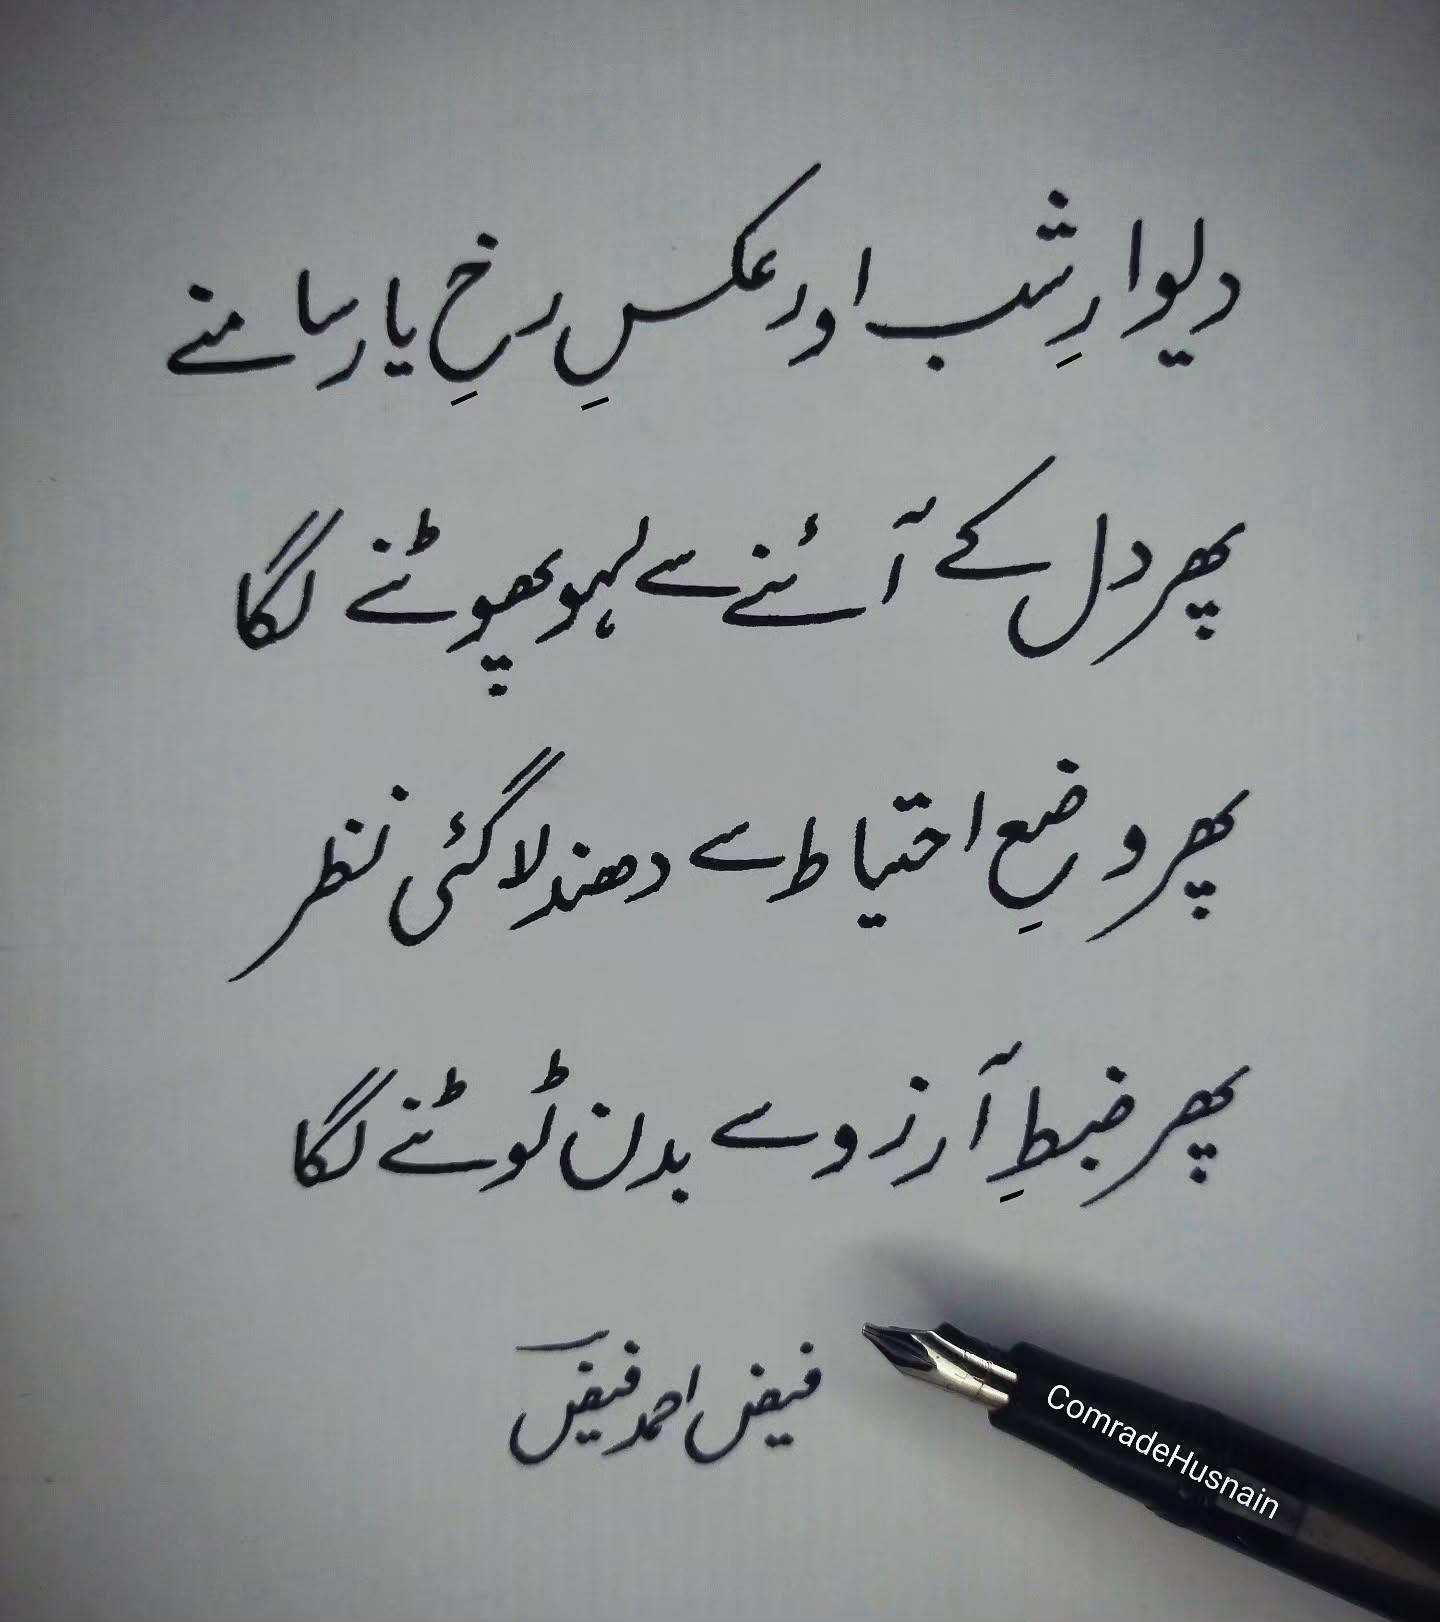 دیوارِ شب اور عکسِ رخِ یار سامنے
پھر دل کے آئنے سے لہو پھوٹنے لگا
پھر وضعِ احتیاط سے دھندلا گئی نظر
پھر ضبطِ آرزو سے بدن ٹوٹنے لگا
فیض احمد فیضؔ
ComradeHusnain